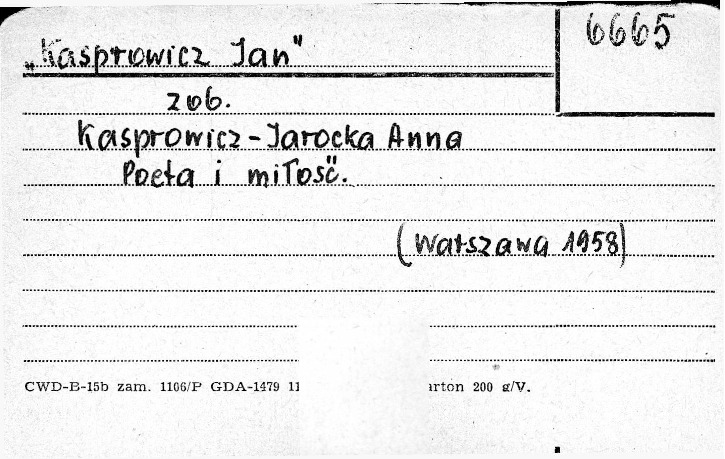 6665
„Kasprowicz Jan"
zob.
Kasprowicz-Jarocka Anna
Poeta i miłość.
(Warszawa 1958)
CWD-B-15b zam. 1106/P GDA-1479 11 arton 200 g/V.